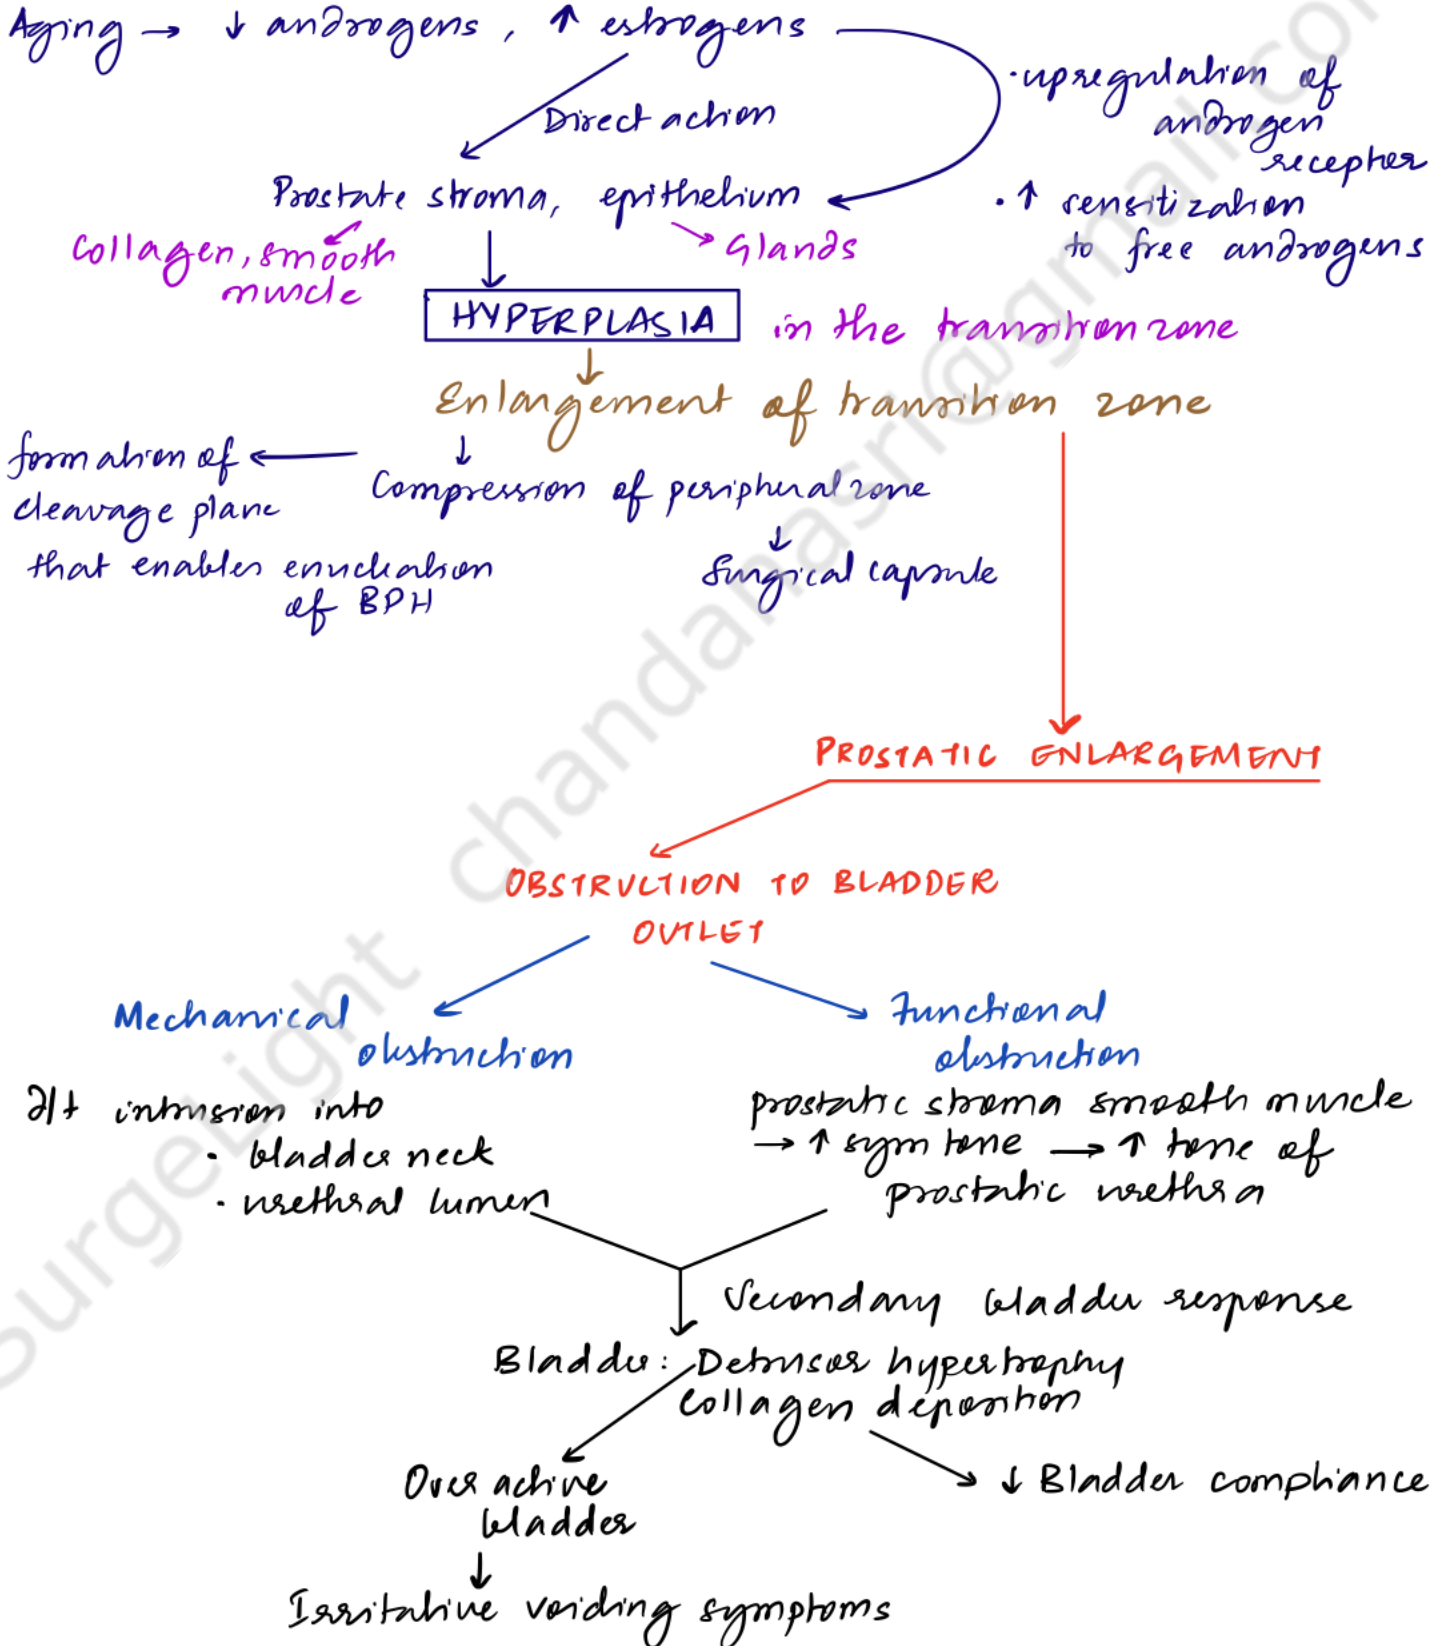 Aging → ↓ androgens , ↑ estrogens
Direct action
• upregulation of
androgen
receptor
• ↑ sensitization
to free androgens
Prostate stroma, epithelium
Collagen, smooth
muscle
Glands
HYPERPLASIA in the transition zone
Enlargement of transition zone
formation of
cleavage plane
that enables enucleation
of BPH
Compression of peripheral zone
Surgical capsule
PROSTATIC ENLARGEMENT
OBSTRUCTION TO BLADDER
OUTLET
Mechanical
obstruction
d/t intrusion into
• bladder neck
• urethral lumen
Functional
obstruction
prostatic stroma smooth muscle
→ ↑ sym tone → ↑ tone of
prostatic urethra
Secondary bladder response
Bladder: Detrusor hypertrophy
Collagen deposition
Over active
bladder
↓ Bladder compliance
Irritative voiding symptoms
SurgeLight chandanasri@gmail.co